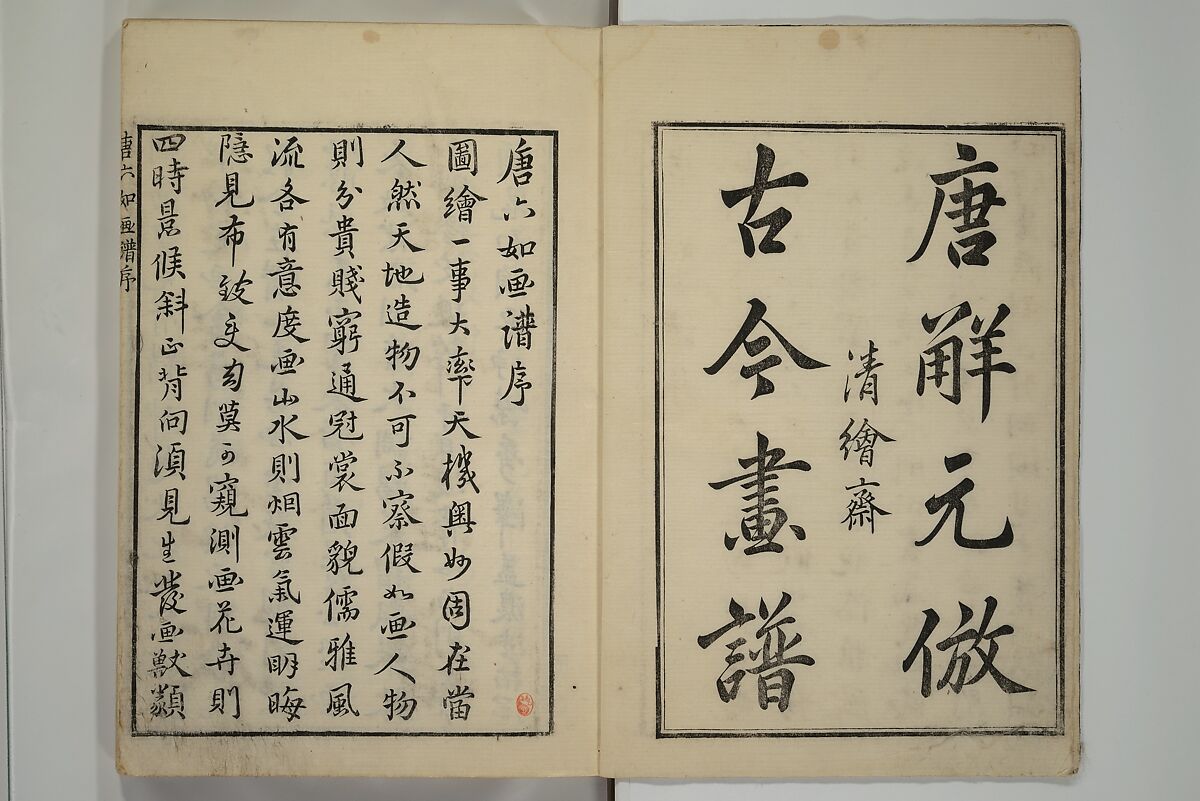 唐解元倣
清繪齋
古今畫譜
唐六如画譜序
圖繪一事大率天機奥妙固在當
人然天地造物不可不察假如画人物
則分貴賤窮通冠裳面貌儒雅風
流各有意度画山水則烟雲氣運明晦
隠見布致更勾莫可窺測画花卉則
四時景候斜正背向湏見生發画獸類
唐六如画譜序